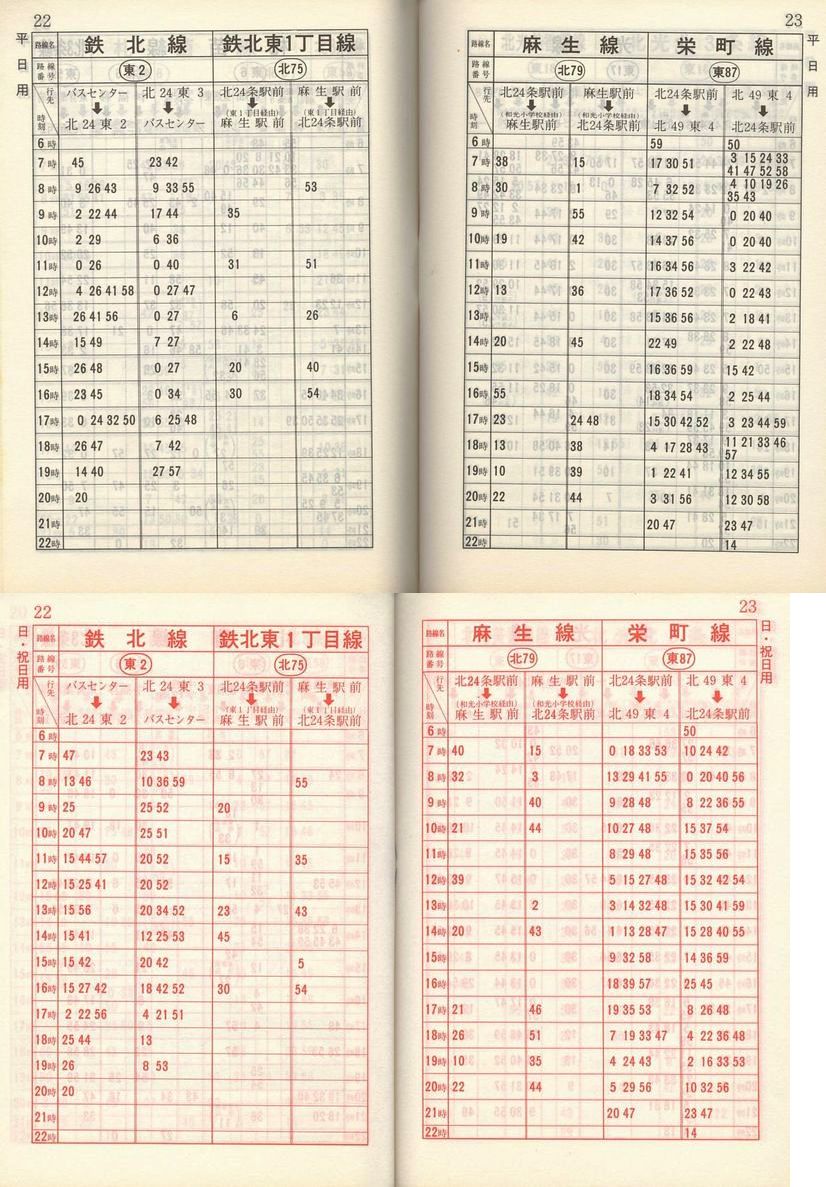 22
平日用
路線名 鉄北線 鉄北東1丁目線
路線番号 東2 北75
行先 バスセンター 北24東3 北24条駅前 麻生駅前
(東1丁目経由) (東1丁目経由)
時刻 北24東2 バスセンター 麻生駅前 北24条駅前
6時
7時 45 23 42
8時 9 26 43 9 33 55 53
9時 2 22 44 17 44 35
10時 2 29 6 36
11時 0 26 0 40 31 51
12時 4 26 41 58 0 27 47
13時 26 41 56 0 27 6 26
14時 15 49 7 27
15時 26 48 0 27 20 40
16時 23 45 0 34 30 54
17時 0 24 32 50 6 25 48
18時 26 47 7 42
19時 14 40 27 57
20時 20
21時
22時
23
平日用
路線名 麻生線 栄町線
路線番号 北79 東87
行先 北24条駅前 麻生駅前 北24条駅前 北49東4
(和光小学校経由) (和光小学校経由)
時刻 麻生駅前 北24条駅前 北49東4 北24条駅前
6時 59 50
7時 38 15 17 30 51 3 15 24 33
41 47 52 58
8時 30 1 7 32 52 4 10 19 26
35 43
9時 55 12 32 54 0 20 40
10時 19 42 14 37 56 0 20 40
11時 16 34 56 3 22 42
12時 13 36 17 36 52 0 22 43
13時 15 36 56 2 18 41
14時 20 45 22 49 2 22 48
15時 16 36 59 15 42
16時 55 18 34 54 2 25 44
17時 23 24 48 15 30 42 52 3 23 44 59
18時 13 38 4 17 28 43 11 21 33 46
57
19時 10 39 1 22 41 12 34 55
20時 22 44 3 31 56 12 30 58
21時 20 47 23 47
22時 14
22
日・祝日用
路線名 鉄北線 鉄北東1丁目線
路線番号 東2 北75
行先 バスセンター 北24東3 北24条駅前 麻生駅前
(東1丁目経由) (東1丁目経由)
時刻 北24東2 バスセンター 麻生駅前 北24条駅前
6時
7時 47 23 43
8時 13 46 10 36 59 55
9時 25 25 52 20
10時 20 47 25 51
11時 15 44 57 20 52 15 35
12時 15 25 41 20 52
13時 15 56 20 34 52 23 43
14時 15 41 12 25 53 45
15時 15 42 20 42 5
16時 15 27 42 18 42 52 30 54
17時 2 22 56 4 21 51
18時 25 44 13
19時 26 8 53
20時 20
21時
22時
23
日・祝日用
路線名 麻生線 栄町線
路線番号 北79 東87
行先 北24条駅前 麻生駅前 北24条駅前 北49東4
(和光小学校経由) (和光小学校経由)
時刻 麻生駅前 北24条駅前 北49東4 北24条駅前
6時 50
7時 40 15 0 18 33 53 10 24 42
8時 32 3 13 29 41 55 0 20 40 56
9時 40 9 28 48 8 22 36 55
10時 21 44 10 27 48 15 37 54
11時 8 29 48 15 35 56
12時 39 5 15 27 48 15 32 42 54
13時 2 3 14 32 48 15 30 41 59
14時 20 43 1 13 28 47 15 28 40 55
15時 9 32 58 14 36 59
16時 18 39 57 25 45
17時 21 46 19 35 53 8 26 48
18時 26 51 7 19 33 47 4 22 36 48
19時 10 35 4 24 43 2 16 33 53
20時 22 44 5 29 56 10 32 56
21時 20 47 23 47
22時 14